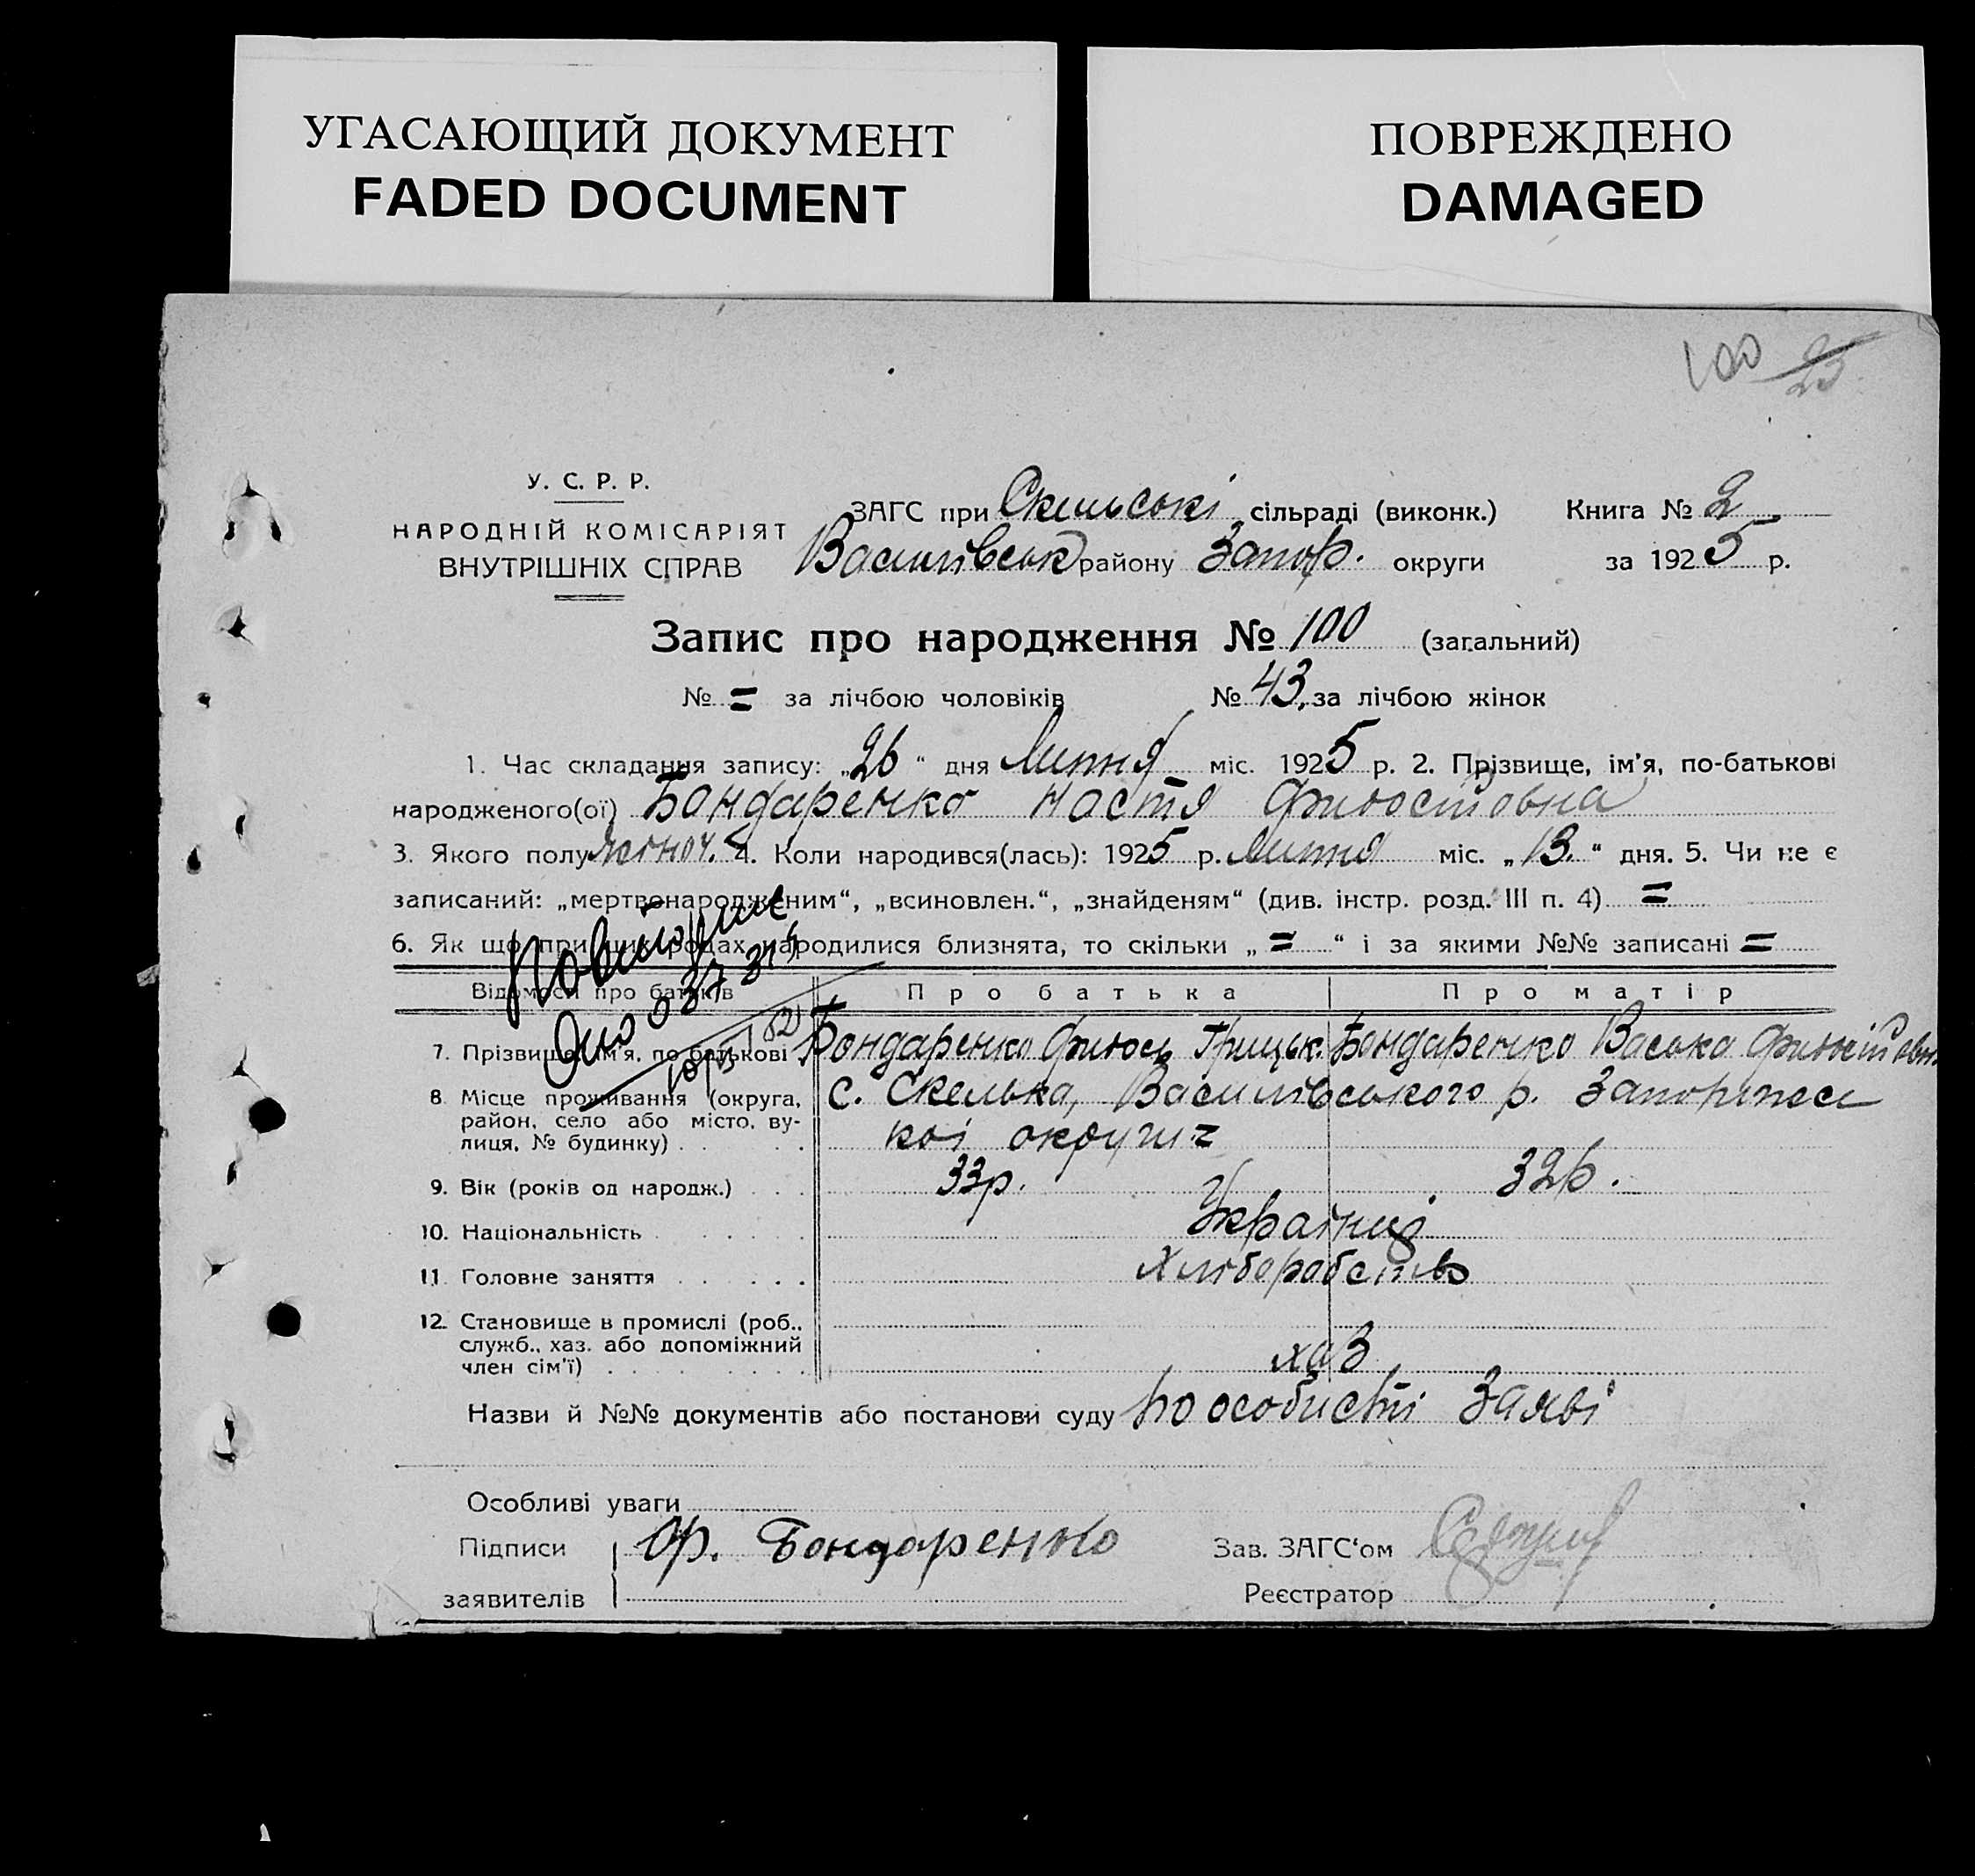 УГАСАЮЩИЙ ДОКУМЕНТ
FADED DOCUMENT
ПОВРЕЖДЕНО
DAMAGED
100 23
У. С. Р. Р.
НАРОДНІЙ КОМІСАРІЯТ
ВНУТРІШНІХ СПРАВ
ЗАГС при Скельські сільраді (виконк.) Книга № 2
Василівськ району Запор. округи за 1925 р.
Запис про народження № 100 (загальний)
№ = за лічбою чоловіків № 43. за лічбою жінок
1. Час складання запису: „26“ дня Липня міс. 1925 р. 2. Прізвище, ім'я, по-батькові
народженого(ої) Бондаренко Настя
3. Якого полу жіноч. 4. Коли народився(лась): 1925 р. Липня міс. „13.“ дня. 5. Чи не є
записаний: „мертвонародженим“, „всиновлен.“, „знайденям“ (див. інстр. розд. III п. 4) =
6. Як що при цих родах народилися близнята, то скільки „=“ і за якими №№ записані =
Відомоси про батьків Про батька Про матір
7. Прізвище, ім'я, по-батькові Бондаренко Грицьк. Бондаренко Васька
8. Місце проживання (округа, район, село або місто, ву-лиця, № будинку) с. Скелька, Василівського р. Запоріжсь
кої округи =
9. Вік (років од народж.) 33р. 32р.
10. Національність Українці
11. Головне заняття Хліборобство
12. Становище в промислі (роб., служб., хаз. або допоміжний член сім'ї) хаз
Назви й №№ документів або постанови суду по особисті заяві
Особливі уваги
Підписи Ф. Бондаренко Зав. ЗАГС'ом
заявителів Реєстратор